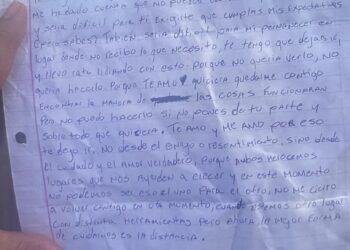 Me he dado cuenta que no puedo
y sería difícil para ti exigirte que cumplas mis expectativas
Pero sabes? También sería difícil para mi permanecer en
lugar donde no recibo lo que necesito, te tengo que dejar ir,
y llevo rato lidiando con esto. Porque no quería verlo, NO
quería hacerlo. Porque TE AMO y quisiera quedarme contigo
Encontrar la manera de las cosas funcionaran
Pero no puedo hacerlo si no pones de tu parte y
Sobre todo que quisiera. Te amo y me amo por eso
te dejo ir, no desde el enojo o resentimiento, sino desde
El cuidado y el amor verdadero, Porque ambos merecemos
lugares que nos ayuden a crecer y en este momento
no podemos ser eso el uno para el otro, no me cierro
a volver contigo en otro momento, cuando seamos otro lugar
con distintas herramientas pero ahora, la mejor forma
de cuidarnos es la distancia.